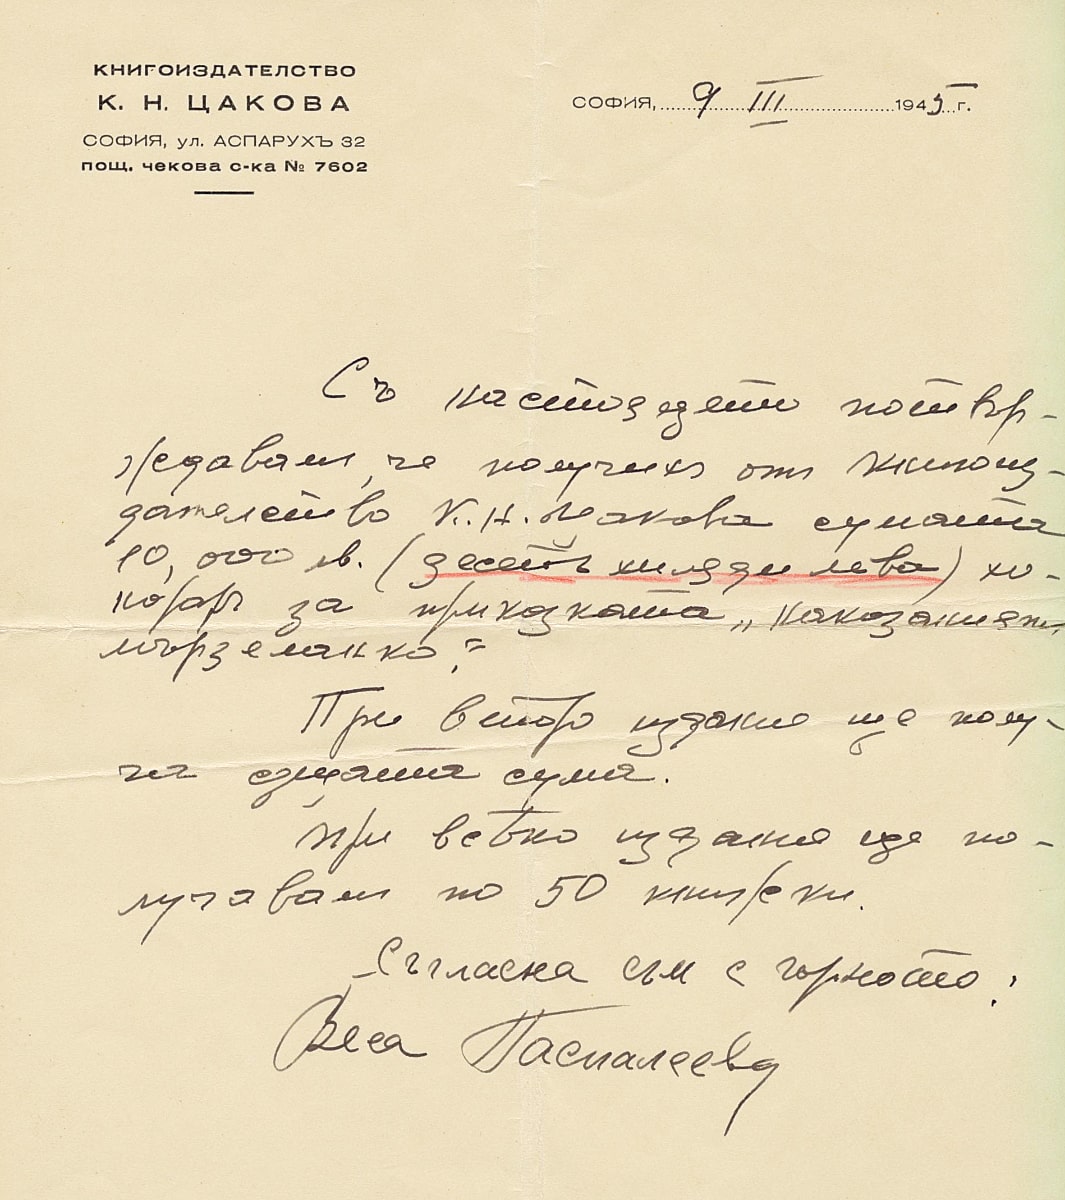 КНИГОИЗДАТЕЛСТВО
К. Н. ЦАКОВА
СОФИЯ, ул. АСПАРУХЪ 32
пощ. чекова с-ка № 7602
СОФИЯ, 9 III 1945 г.
Съ настоящето потвър-
ждавам, че получих от книгоиз-
дателство К. Н. Цакова сумата
10,000 лв. (десеть хиляди лева) хо-
норар за приказката „Наказаният
мързеланко“.
При второ издание ще полу-
ча същата сума.
При всѣко издание ще по-
лучавам по 50 книжки.
Съгласна съм с горното:
Веса Паспалеева